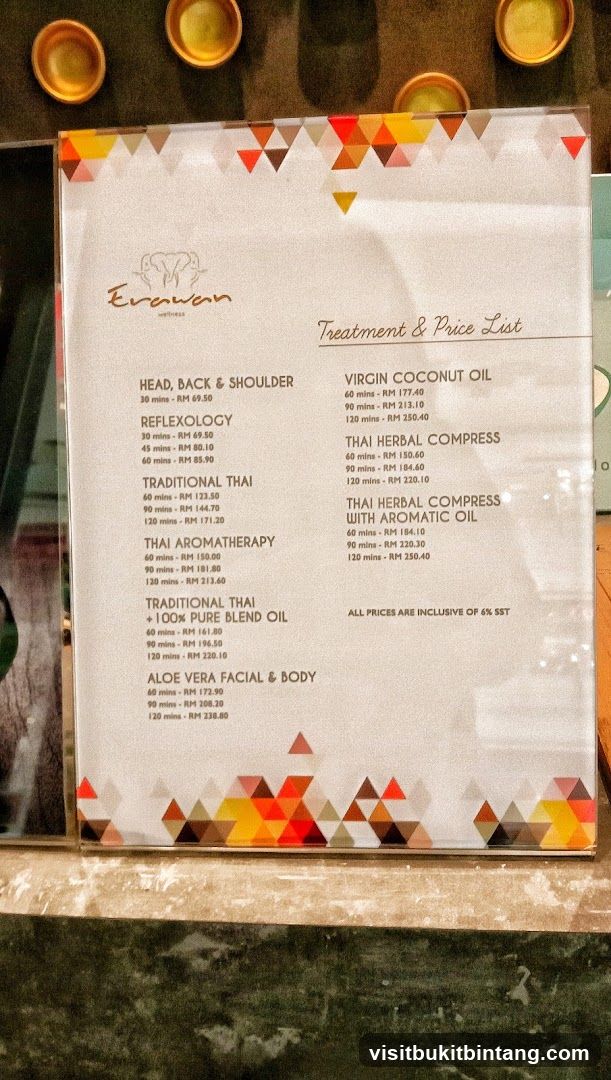 Erawan
wellness
Treatment & Price List
HEAD, BACK & SHOULDER
30 mins - RM 69.50
REFLEXOLOGY
30 mins - RM 69.50
45 mins - RM 80.10
60 mins - RM 85.90
TRADITIONAL THAI
60 mins - RM 123.50
90 mins - RM 144.70
120 mins - RM 171.20
THAI AROMATHERAPY
60 mins - RM 150.00
90 mins - RM 181.80
120 mins - RM 213.60
TRADITIONAL THAI
+100% PURE BLEND OIL
60 mins - RM 161.80
90 mins - RM 196.50
120 mins - RM 220.10
ALOE VERA FACIAL & BODY
60 mins - RM 172.90
90 mins - RM 208.20
120 mins - RM 238.80
VIRGIN COCONUT OIL
60 mins - RM 177.40
90 mins - RM 213.10
120 mins - RM 250.40
THAI HERBAL COMPRESS
60 mins - RM 150.60
90 mins - RM 184.60
120 mins - RM 220.10
THAI HERBAL COMPRESS
WITH AROMATIC OIL
60 mins - RM 184.10
90 mins - RM 220.30
120 mins - RM 250.40
ALL PRICES ARE INCLUSIVE OF 6% SST
visitbukitbintang.com